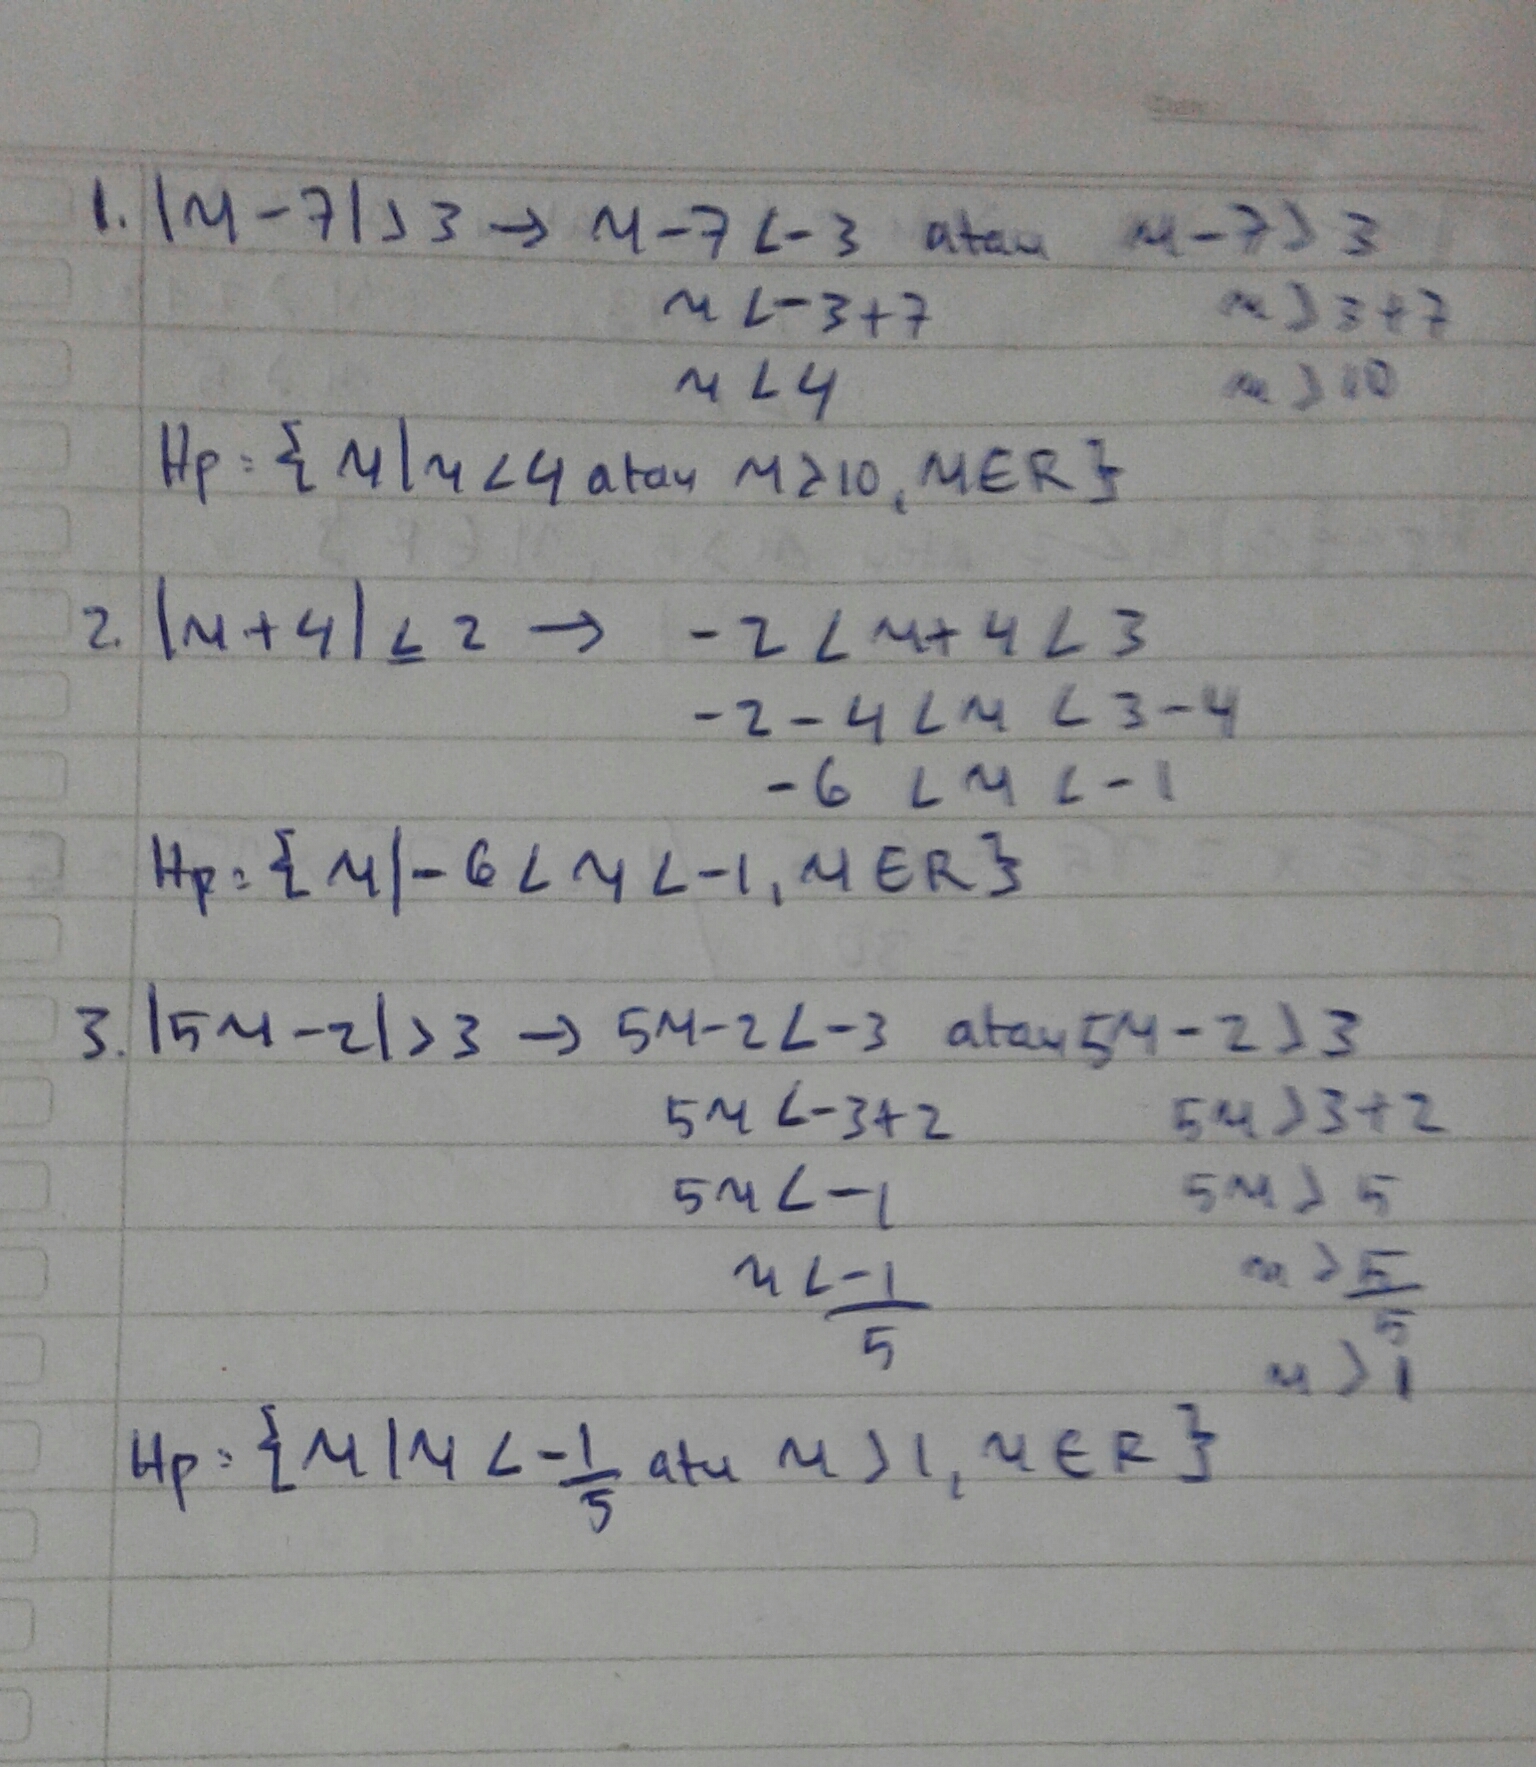 1. |x-7|>3 → x-7<-3 atau x-7>3
x<-3+7 x>3+7
x<4 x>10
Hp = {x|x<4 atau x>10, x∈R}
2. |x+4|≤2 → -2<x+4<3
-2-4<x<3-4
-6<x<-1
Hp = {x|-6<x<-1, x∈R}
3. |5x-2|>3 → 5x-2<-3 atau 5x-2>3
5x<-3+2 5x>3+2
5x<-1 5x>5
x<-1/5 x>5/5
x>1
Hp = {x|x<-1/5 atu x>1, x∈R}